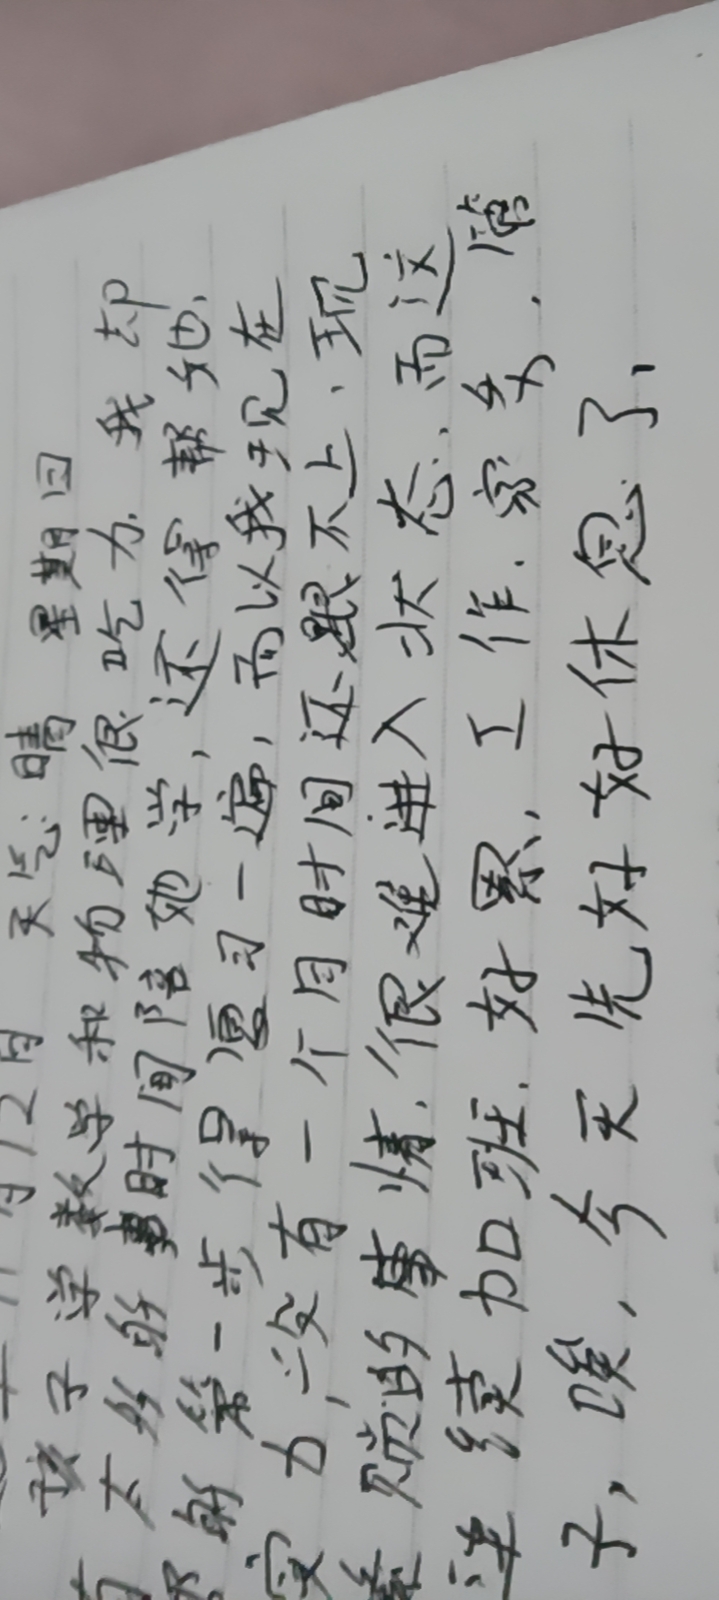 12月 天气:晴 星期四
孩子学数学和物理很吃力.我却
有太多的时间陪她学,还得帮她.
的第一步得温习一遍,而以我现在
实力,没有一个月时间还跟不上、现
琐的事情、很难进入状态、而这
连续加班.好累、工作.家务、管
子,唉、今天先好好休息了、